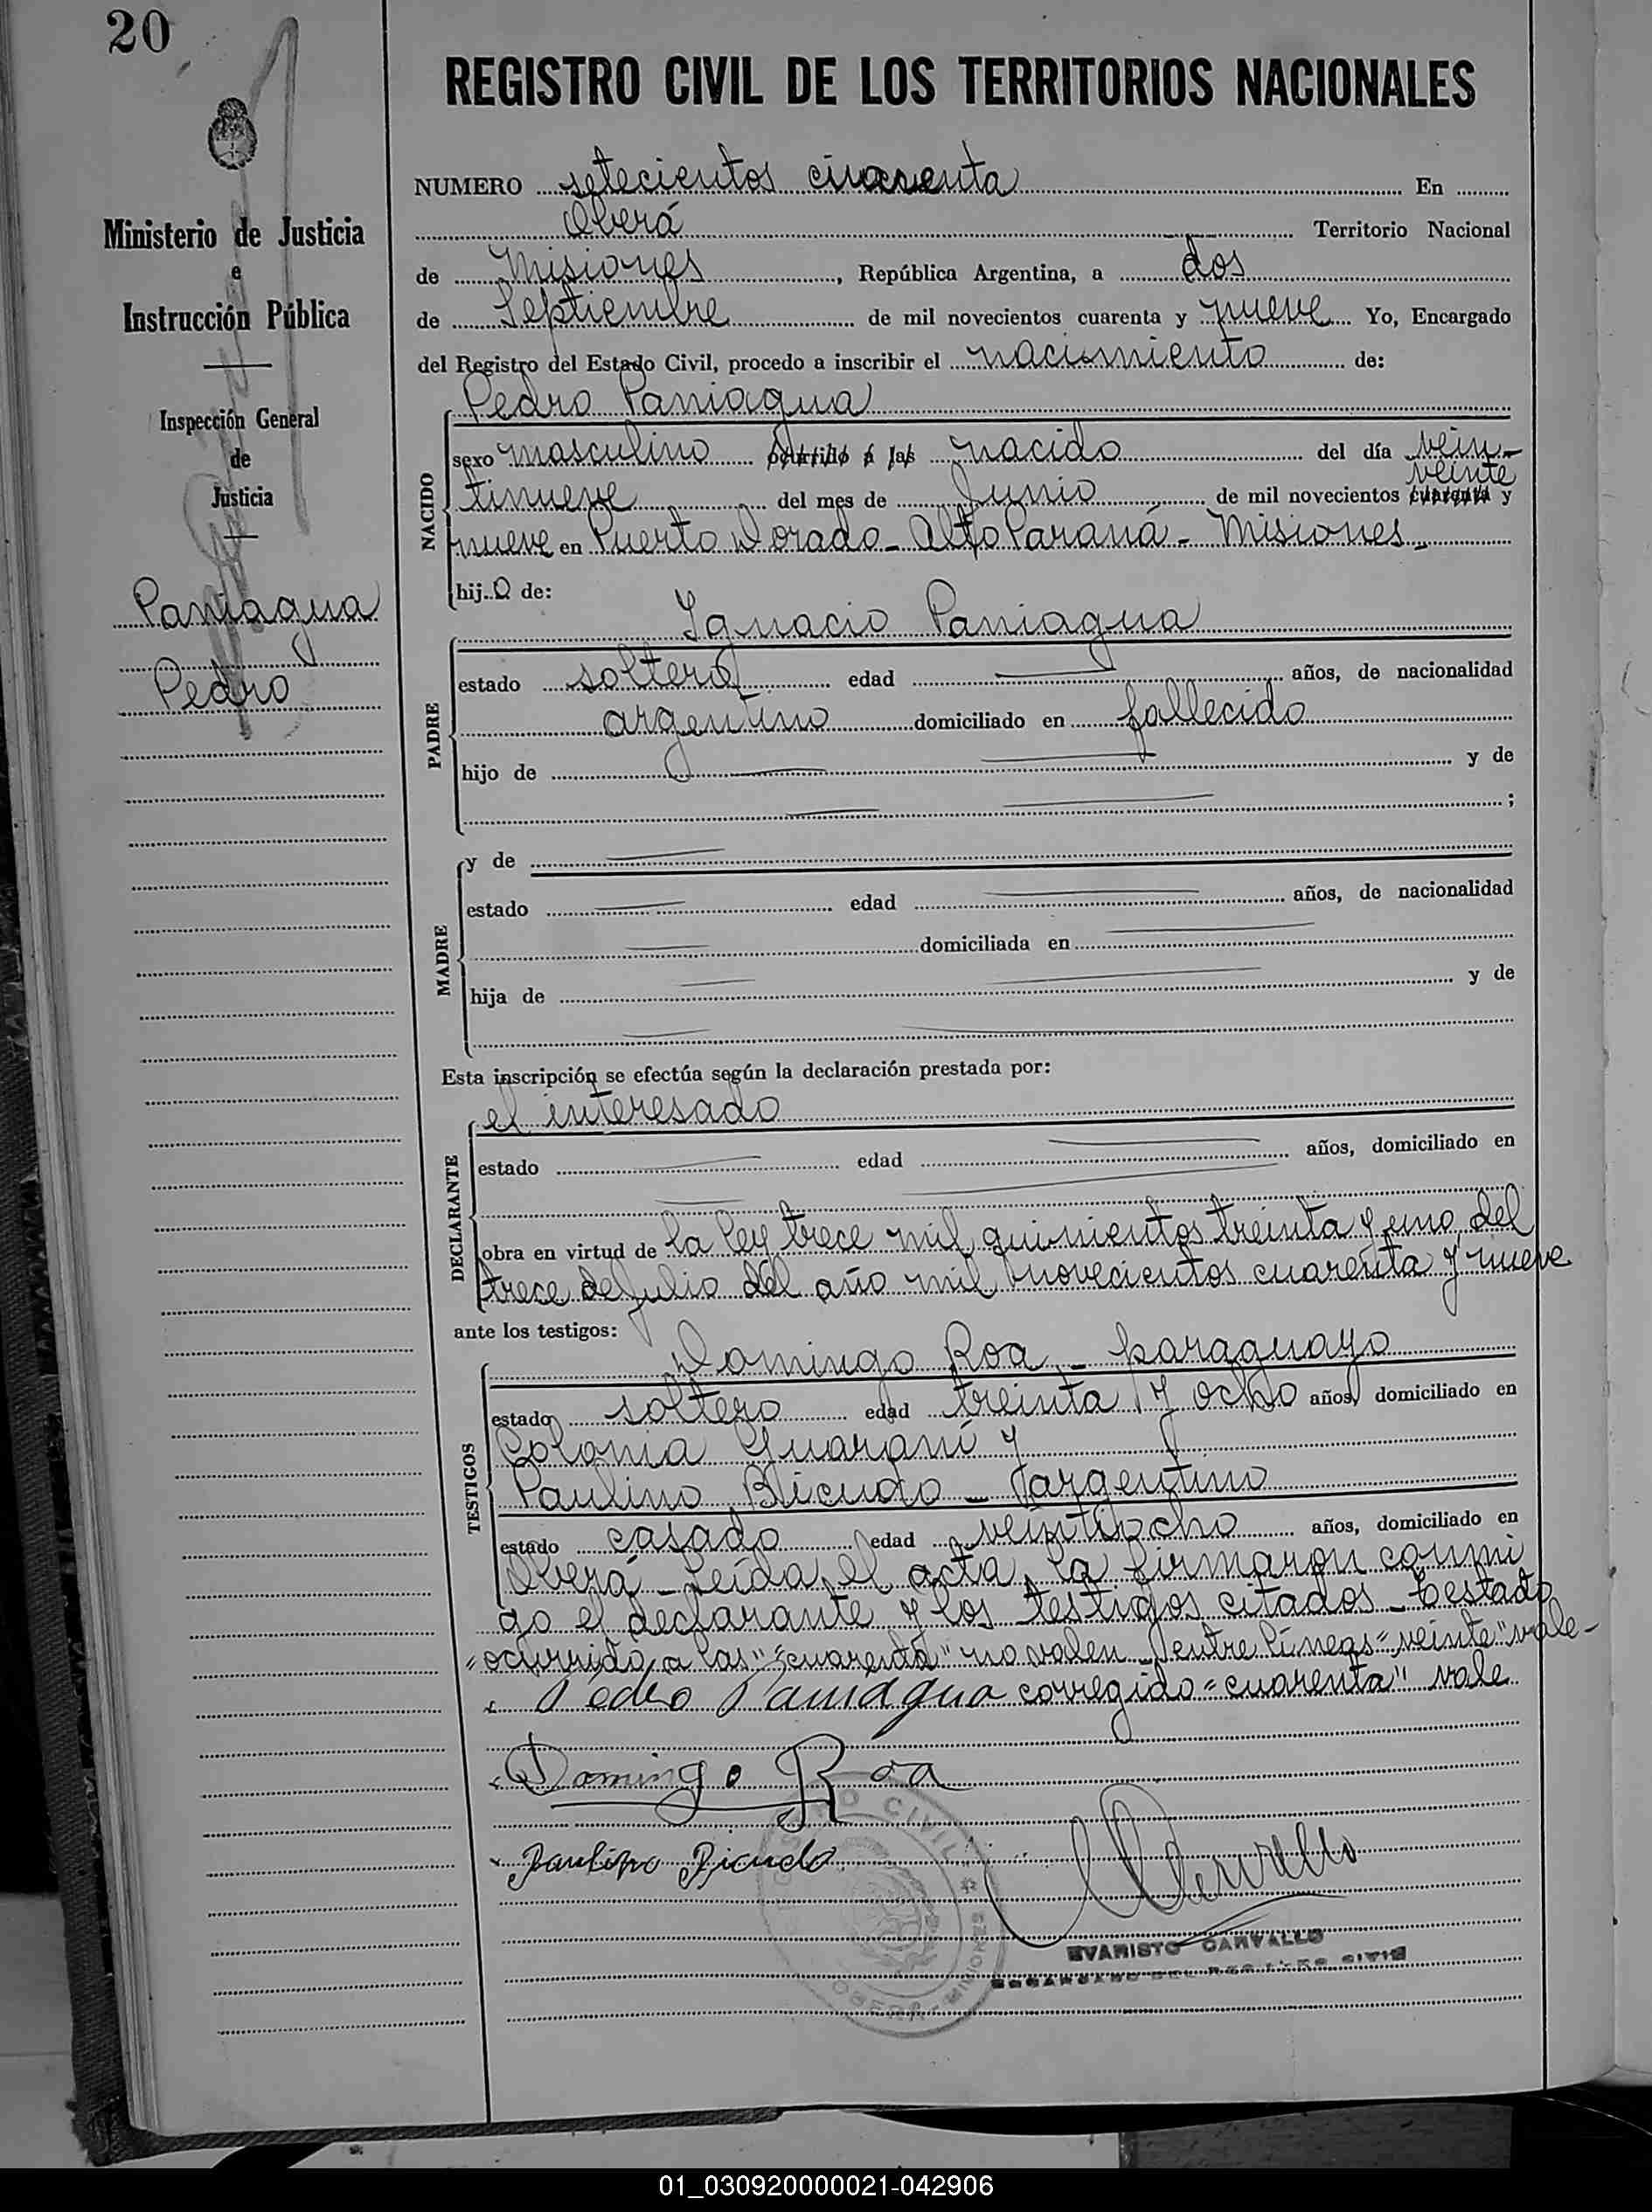 20
REGISTRO CIVIL DE LOS TERRITORIOS NACIONALES
NUMERO setecientos cuarenta En
Oberá Territorio Nacional
de Misiones, República Argentina, a dos
de Septiembre de mil novecientos cuarenta y nueve Yo, Encargado
del Registro del Estado Civil, procedo a inscribir el nacimiento de:
Ministerio de Justicia
e
Instrucción Pública
Inspección General
de
Justicia
Paniagua
Pedro
NACIDO
Pedro Paniagua
sexo masculino ocurrido a las nacido del día vein-
veinte
tinueve del mes de Junio de mil novecientos cuarenta y
nueve en Puerto Dorado - Alto Paraná - Misiones -
hijo de:
PADRE
Ignacio Paniagua
estado soltero edad años, de nacionalidad
argentino domiciliado en fallecido
hijo de y de
;
MADRE
y de
estado edad años, de nacionalidad
domiciliada en
hija de y de
Esta inscripción se efectúa según la declaración prestada por:
DECLARANTE
el interesado
estado edad años, domiciliado en
obra en virtud de la ley trece mil quinientos treinta y uno del
trece de Julio del año mil novecientos cuarenta y nueve
ante los testigos:
TESTIGOS
Domingo Roa - paraguayo
estado soltero edad treinta y ocho años, domiciliado en
Colonia Guaraní y
Paulino Bicudo - argentino
estado casado edad veintiocho años, domiciliado en
Oberá - Leída el acta, la firmaron conmi
go el declarante y los testigos citados - testado
"ocurrido a las" "cuarenta" no valen - entre líneas "veinte" vale -
Pedro Paniagua corregido "cuarenta" vale
Domingo Roa
Paulino Bicudo
REGISTRO CIVIL
OBERÁ - MISIONES
EVARISTO CARVALLO
ENCARGADO DEL REGISTRO CIVIL
01_030920000021-042906